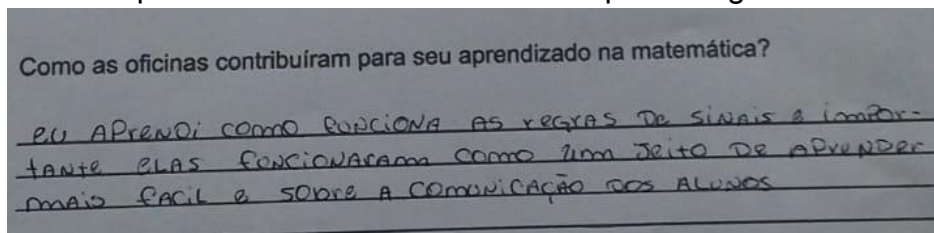 Como as oficinas contribuíram para seu aprendizado na matemática?
eu APrenDi como funciona as regras De sinais e impor-
tante elas foncionaram como um jeito De APrender
mais facil e sobre A comunicação Dos Alunos